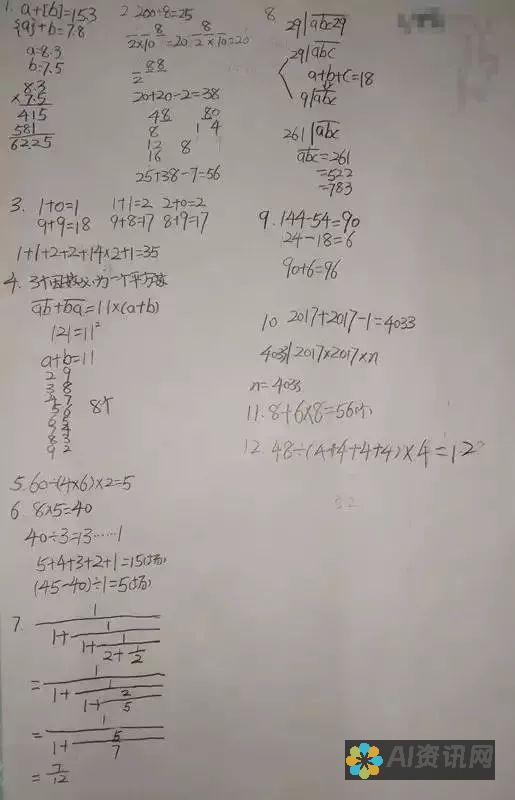 1. a+[b]=15.3
{a}+b=7.8
a=8.3
b=7.5
8.3
×7.5
415
581
62.25
2. 200÷8=25
8
2×10=20
8
2×10=20
88
2
20+20-2=38
48 80
8 1 4
12 8
16
25+38-7=56
3. 1+0=1 1+1=2 2+0=2
9+9=18 9+8=17 8+9=17
1+1+2+2+14×2+1=35
4. 3个因数为一个平方数
ab+ba=11×(a+b)
121=11²
a+b=11
2 9
3 8
4 7
5 6 8个
6 5
7 4
8 3
9 2
5. 60÷(4×6)×2=5
6. 8×5=40
40÷3=13……1
5+4+3+2+1=15(场)
(45-40)÷1=5(场)
7. 1
1+ 1
1+ 1
2+ 1/2
= 1
1+ 1
1+ 2/5
= 1
1+ 5/7
= 7/12
8 29|abc29
29|abc
a+b+c=18
9|abc
261|abc
abc=261
=522
=783
9. 144-54=90
24-18=6
90+6=96
10 2017+2017-1=4033
4033|2017×2017×n
n=4033
11. 8+6×8=56(个)
12. 48÷(4+4+4+4)×4=12
AI资讯网